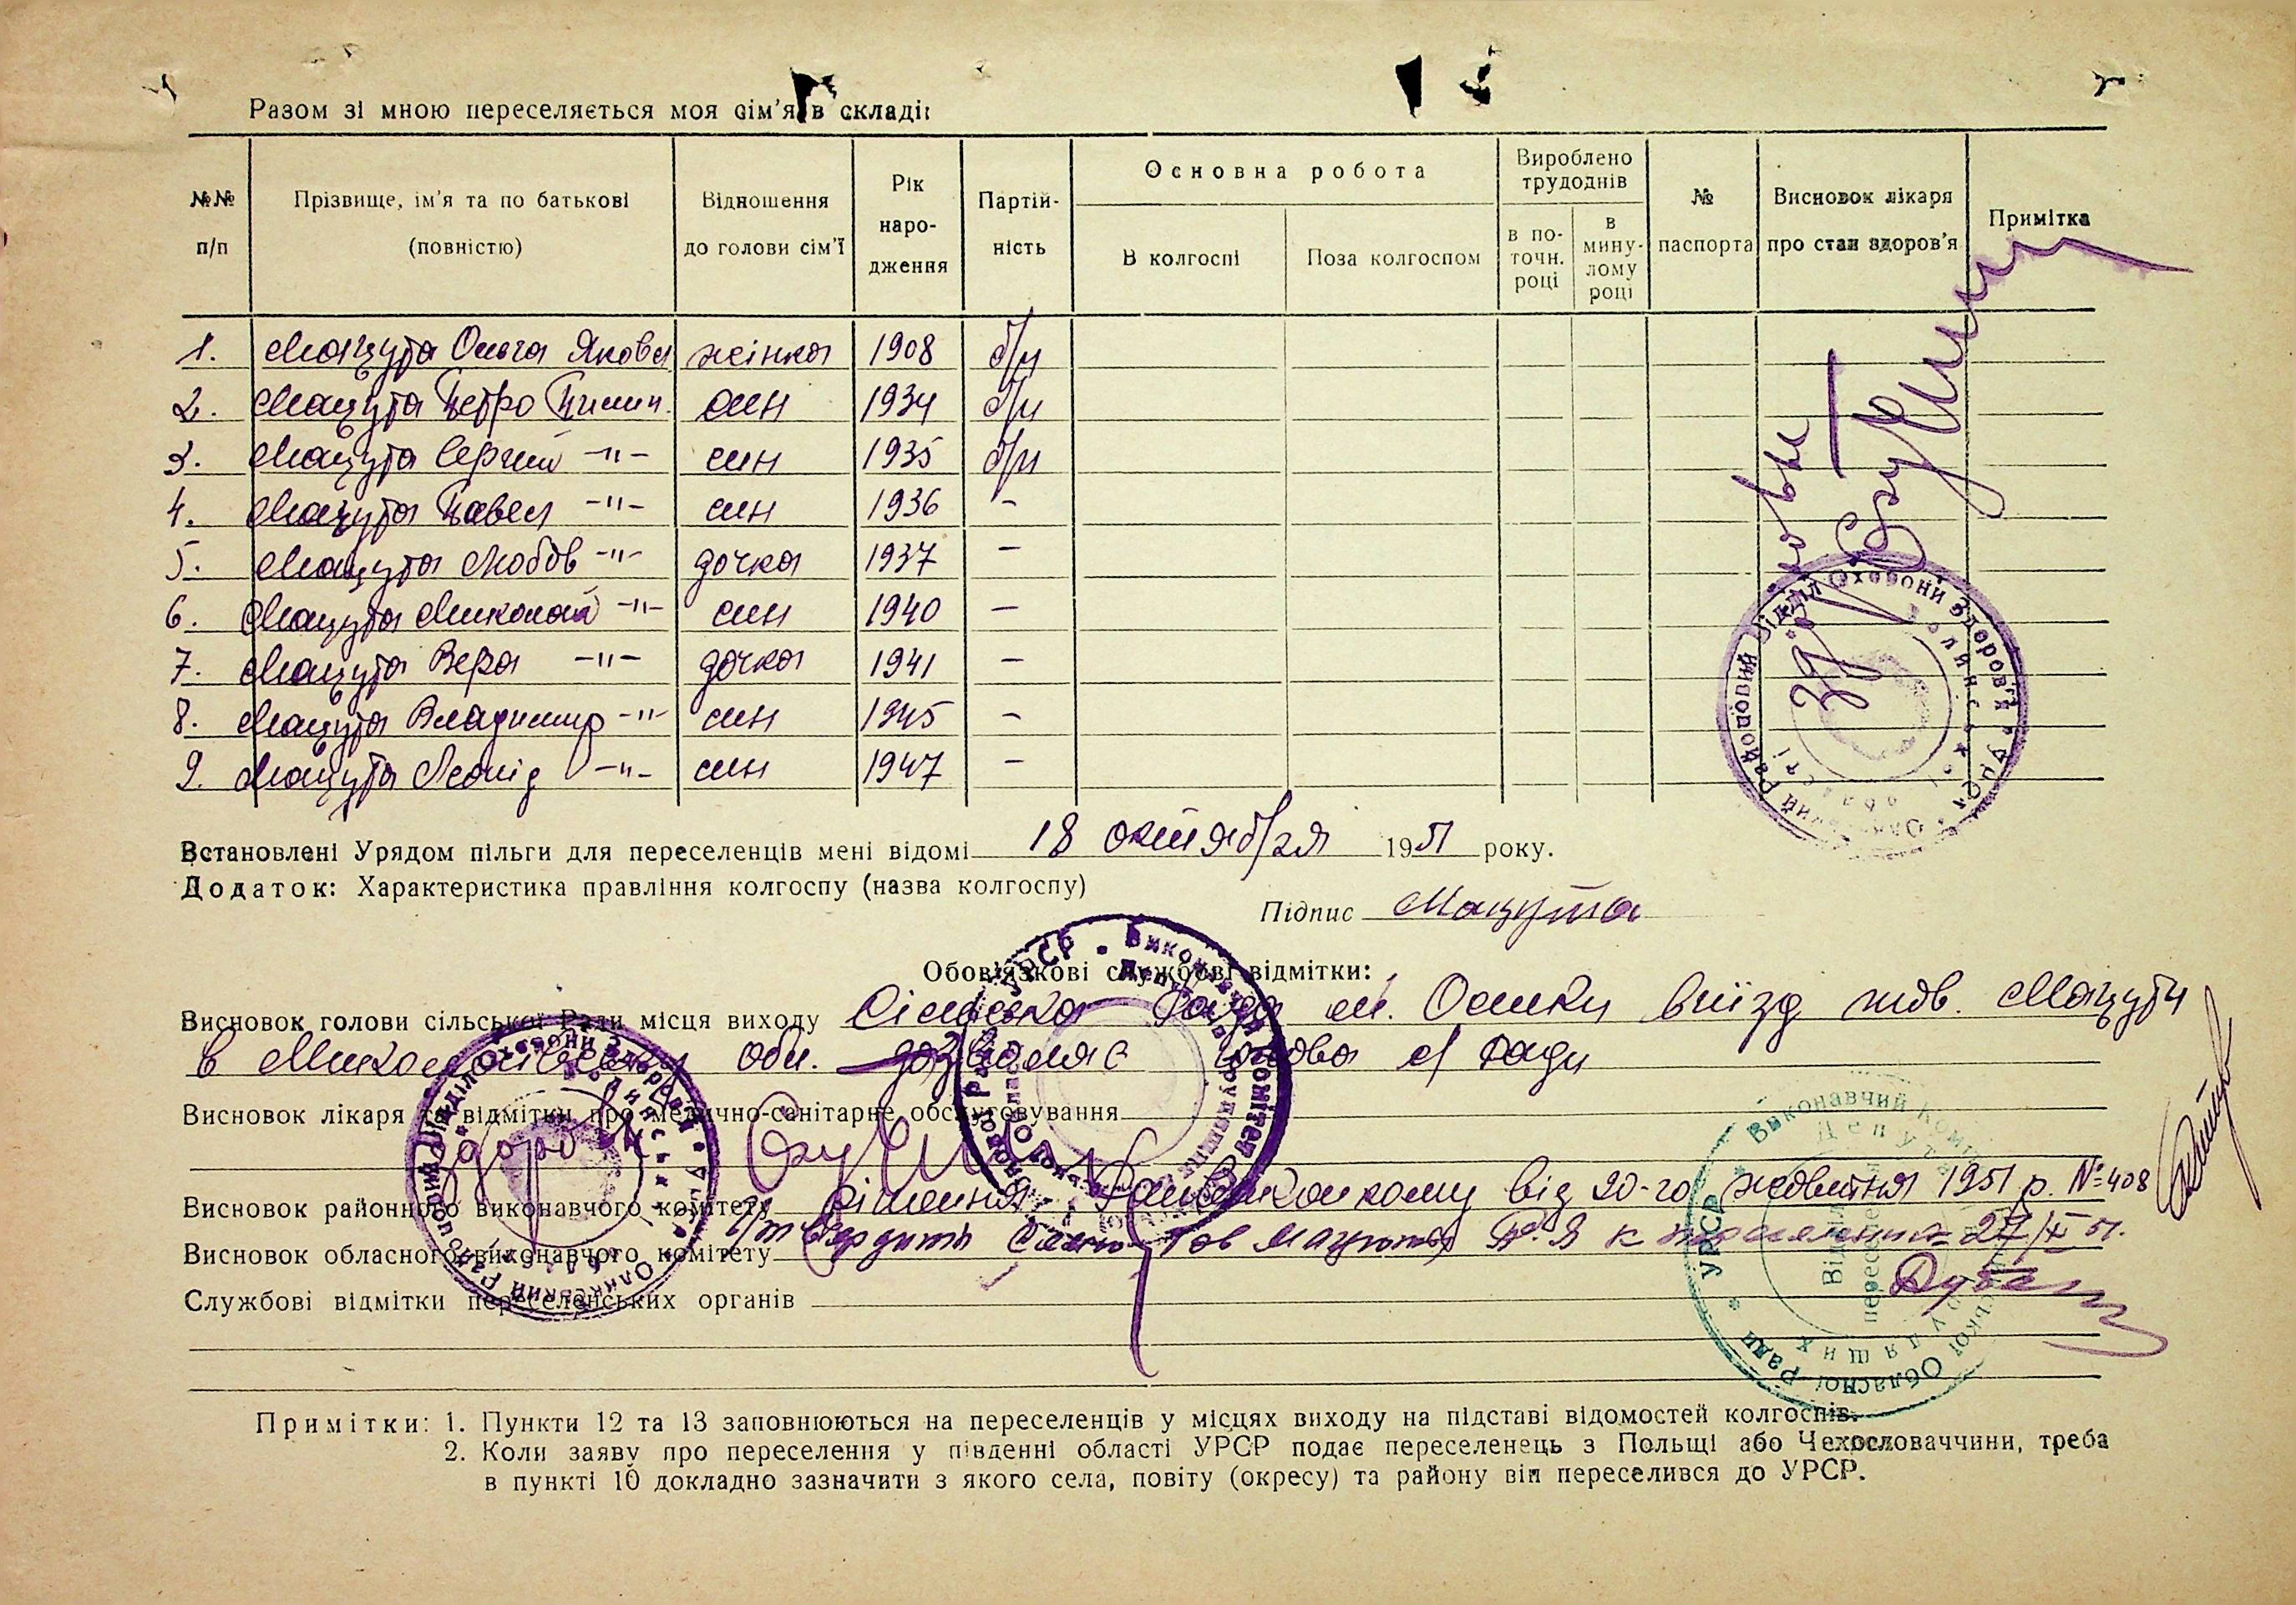 Разом зі мною переселяється моя сім'я в складі:
№№ п/п
Прізвище, ім'я та по батькові (повністю)
Відношення до голови сім'ї
Рік народження
Партійність
Основна робота
В колгоспі
Поза колгоспом
Вироблено трудоднів
в поточн. році
в минулому році
№ паспорта
Висновок лікаря про стан здоров'я
Примітка
1. Мацута Ольга Яковл жінка 1908 б/п
2. Мацута Петро Пилип. син 1934 б/п
3. Мацута Сергій -"- син 1935 б/п
4. Мацута Павел -"- син 1936 -
5. Мацута Любов -"- дочка 1937 -
6. Мацута Миколай -"- син 1940 -
7. Мацута Вера -"- дочка 1941 -
8. Мацута Владимир -"- син 1945 -
9. Мацута Леонід -"- син 1947 -
Районний Відділ Охорони Здоров'я
Встановлені Урядом пільги для переселенців мені відомі 18 октября 1951 року.
Додаток: Характеристика правління колгоспу (назва колгоспу)
Підпис Мацута
Обов'язкові службові відмітки:
Висновок голови сільської Ради місця виходу Сільська Рада м. Олики виїзд тов. Мацути
в Миколаївську обл. дозволяє голова с/ Ради
Висновок лікаря та відмітки про медично-санітарне обслуговування
здоровы
Висновок районного виконавчого комітету рішення Райвиконкому від 20-го жовтня 1951 р. № 408
Висновок обласного виконавчого комітету Утвердить семью тов Мацута П.Я к переселению 27/X 51.
Службові відмітки переселенських органів
УРСР Виконавчий Комітет Обласної Ради Депутатів Трудящих
Примітки: 1. Пункти 12 та 13 заповнюються на переселенців у місцях виходу на підставі відомостей колгоспів.
2. Коли заяву про переселення у південні області УРСР подає переселенець з Польщі або Чехословаччини, треба
в пункті 10 докладно зазначити з якого села, повіту (окресу) та району він переселився до УРСР.